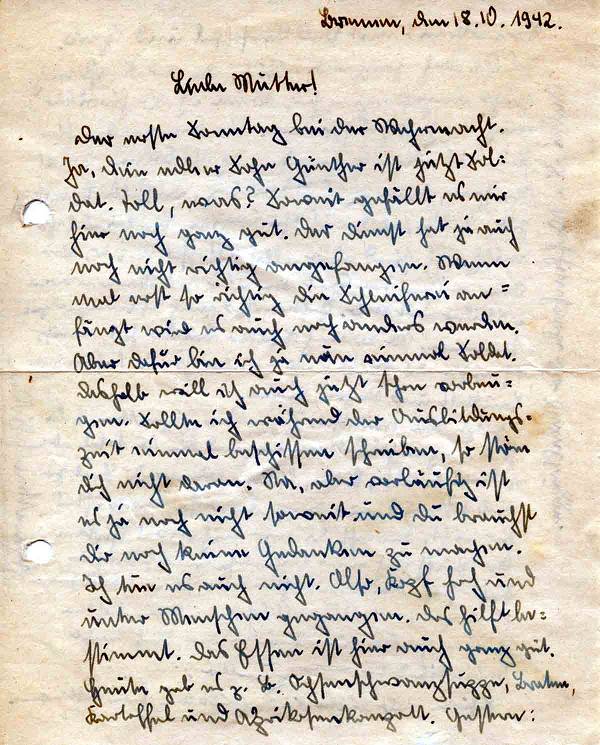 Bremen, den 18.10.1942.
Liebe Mutter!
Der erste Sonntag bei der Wehrmacht.
Ja, dein edler Sohn Günther ist jetzt Sol=
dat. Toll, was? Soweit gefällt es mir
hier noch ganz gut. Der Dienst hat ja auch
noch nicht richtig angefangen. Wenn
mal erst so richtig die Schleiferei an=
fängt wird es auch noch anders werden.
Aber dafür bin ich ja nun einmal Soldat.
Deshalb will ich auch jetzt schon vorbeu=
gen. Sollte ich während der Ausbildungs=
zeit einmal beschissen schreiben, so stör
dich nicht daran. Na, aber vorläufig ist
es ja noch nicht soweit und du brauchst
dir noch keine Gedanken zu machen.
Ich tue es auch nicht. Also, Kopf hoch und
unter Menschen gegangen. Das hilft be=
stimmt. Das Essen ist hier auch ganz gut.
Heute gab es z. B. Ochsenschwanzsuppe, Braten,
Kartoffel und Aprikosenkompott. Gestern: